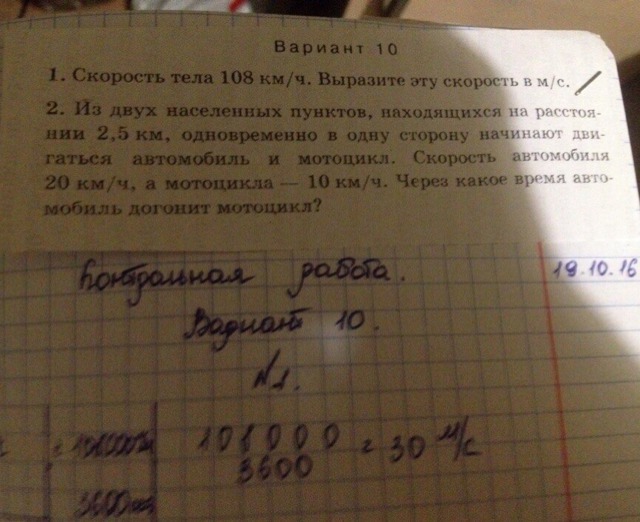 Вариант 10
1. Скорость тела 108 км/ч. Выразите эту скорость в м/с.
2. Из двух населенных пунктов, находящихся на расстоя-
нии 2,5 км, одновременно в одну сторону начинают дви-
гаться автомобиль и мотоцикл. Скорость автомобиля
20 км/ч, а мотоцикла — 10 км/ч. Через какое время авто-
мобиль догонит мотоцикл?
19.10.16
Контрольная работа.
Вариант 10.
№1.
108000
3600
= 30 м/с